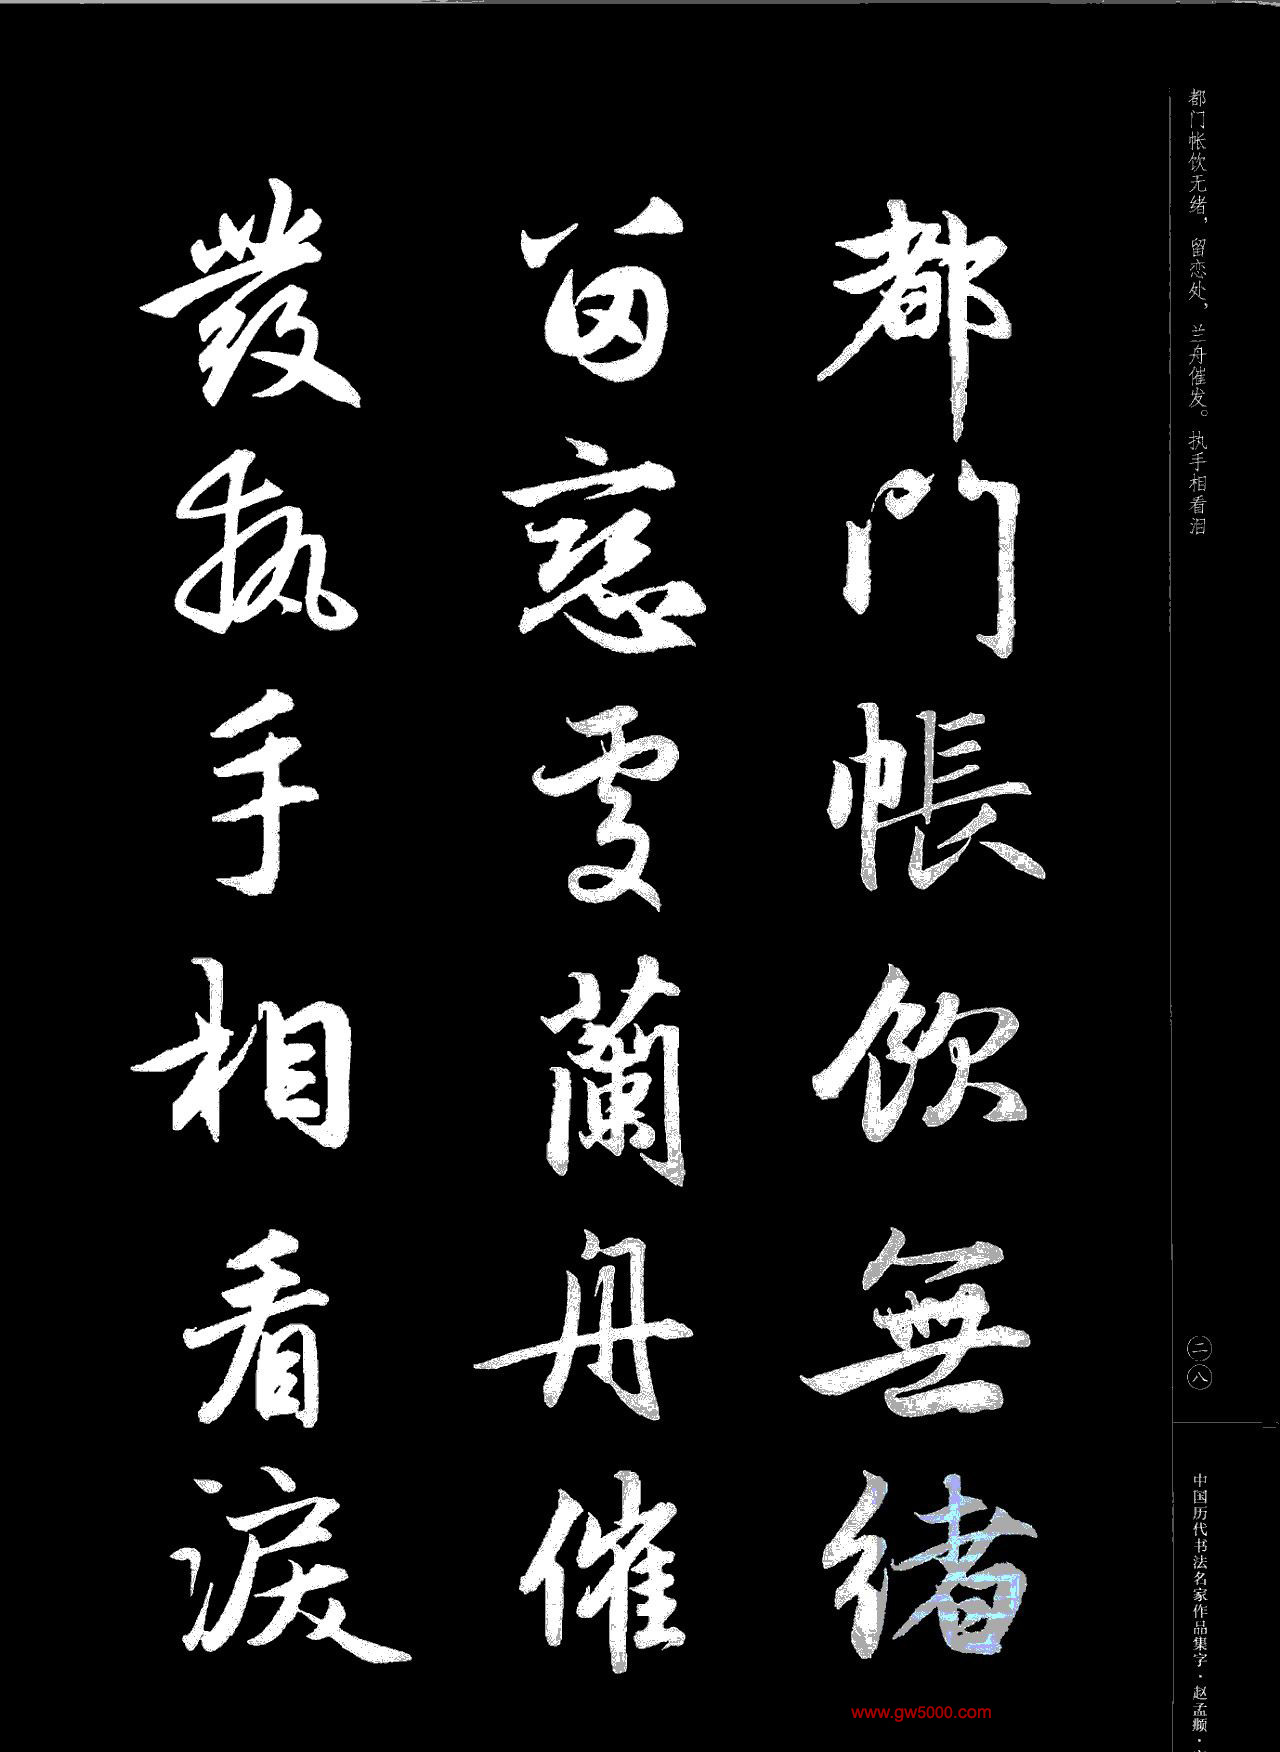 都门帐饮无绪，留恋处，兰舟催发。执手相看泪
都門帳飲無緒
留戀處蘭舟催
發執手相看淚
二八
中国历代书法名家作品集字·赵孟頫·
www.gw5000.com